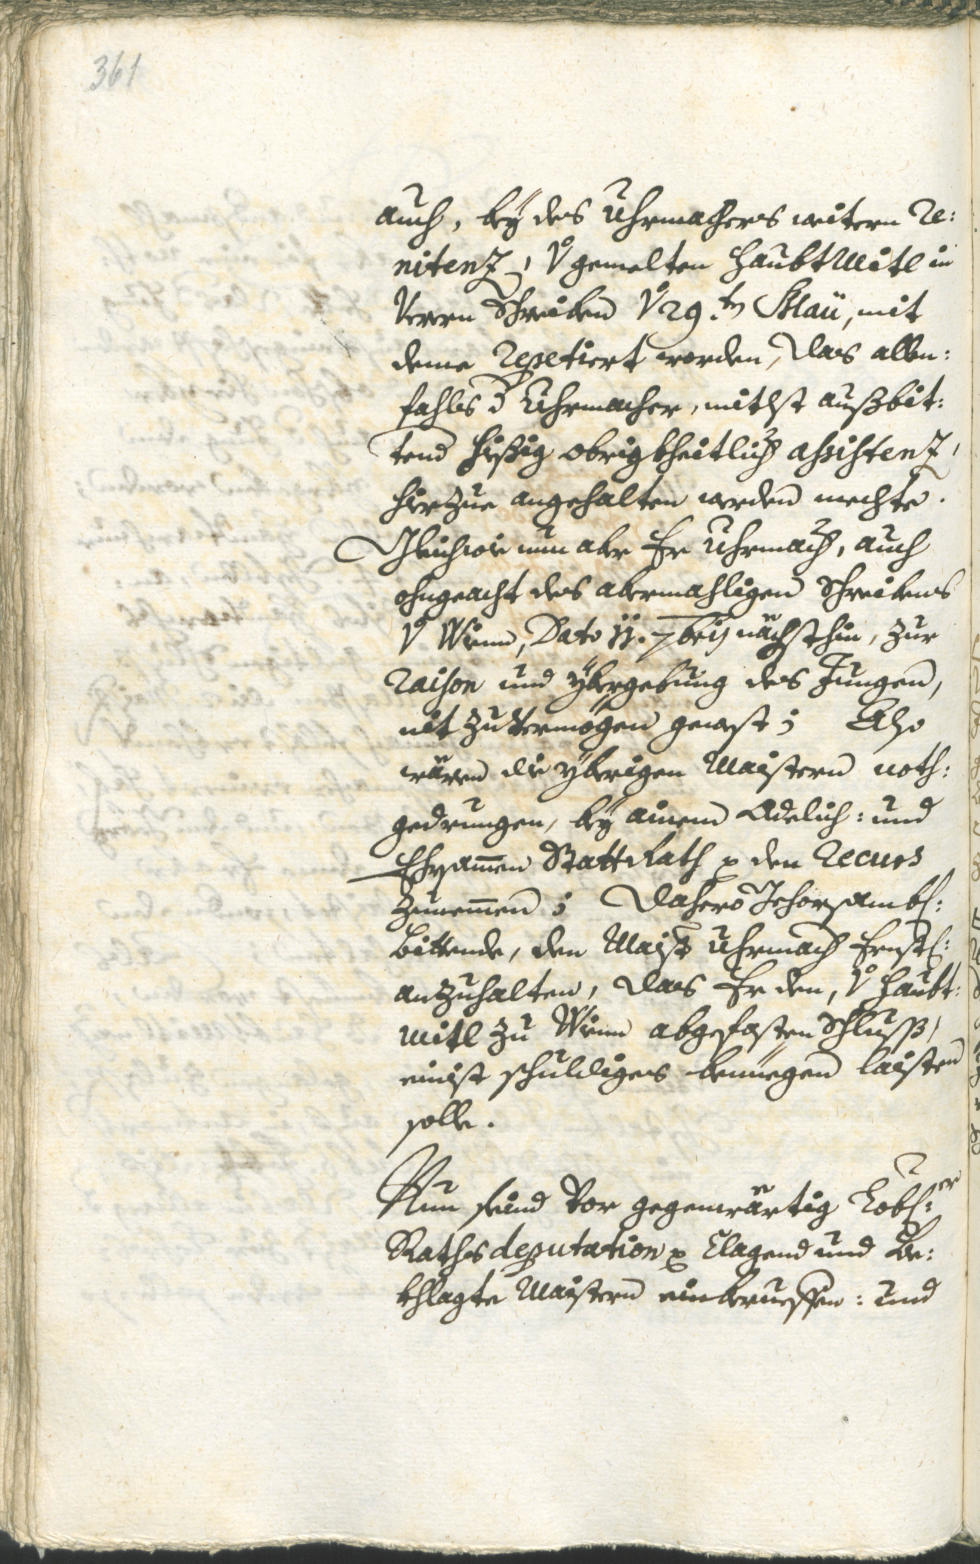 361
auch, beÿ des Uhrmachers weitern Re:
nitenz, v gemelten HaubtMitl in
Ihren Schreiben v 29.ten Maÿ, mit
deme Repetiert worden, das allen:
fahls d Uhrmacher, mitlst außbit:
tend hießig obrigkheitlich assistenz,
hierzue angehalten werden mechte.
Gleichwie nun aber Er Uhrmach, auch
ohngeacht des abermahligen Schreibens
v Wienn, Dato 11. 7bris nächsthin, zur
Raison und ybergebung des Jungen,
nit zu vermögen gewest; Also
wären die yberigen Maistern noth:
gedrungen, beÿ ainem Adelich: und
Ehrsammen Statt Rath p den Recurs
zunemmen; Dahero Gehorsambl:
bittende, den Maister Uhrmach Ernstl:
anzuhalten, das Er den, v Haubt:
mitl zu Wienn abgefasten Schluß,
einist schuldiges beniegen laisten
solle.
Nun seind Vor gegenwärtig Löbl:er
Raths deputation p Clagend und Be:
khlagte Maistern einberueffen: und